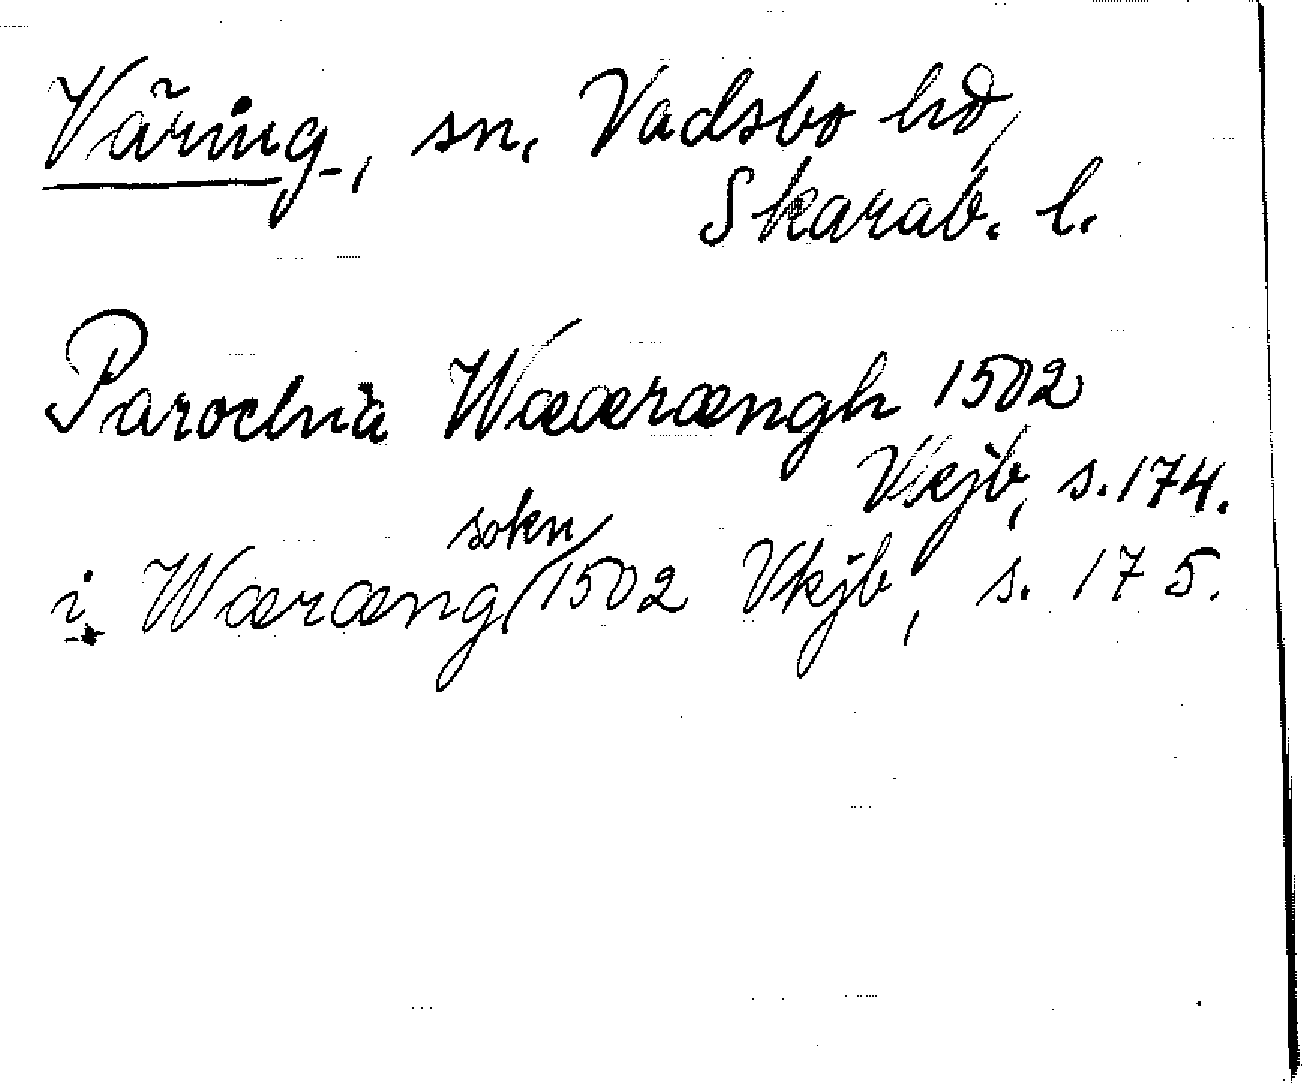 Väring, sn, Vadsbo hd,
Skarab. l.
Parochia Wæærængh 1502
Vkjb, s. 174.
i Wæræng sokn 1502 Vkjb, s. 175.